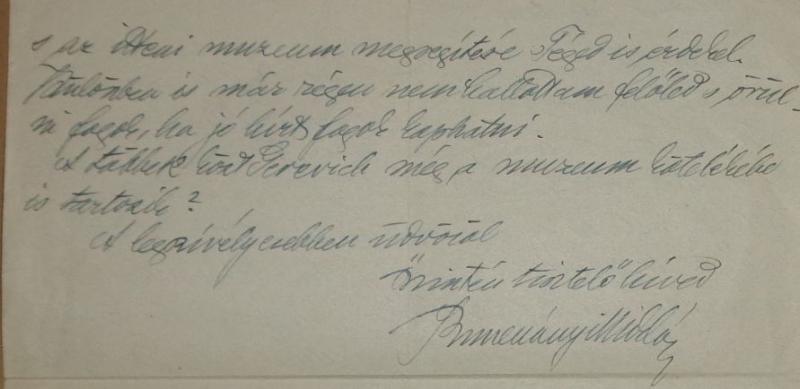 s az itteni muzeum megsegítése Téged is érdekel.
Különben is már régen nem hallottam felőled s örül-
ni fogok, ha jó hírt fogok kaphatni.
A többek közt Gerevich még a muzeum kötelékébe
is tartozik?
A legszívélyesebben üdvözöl
őszintén tisztelő híved